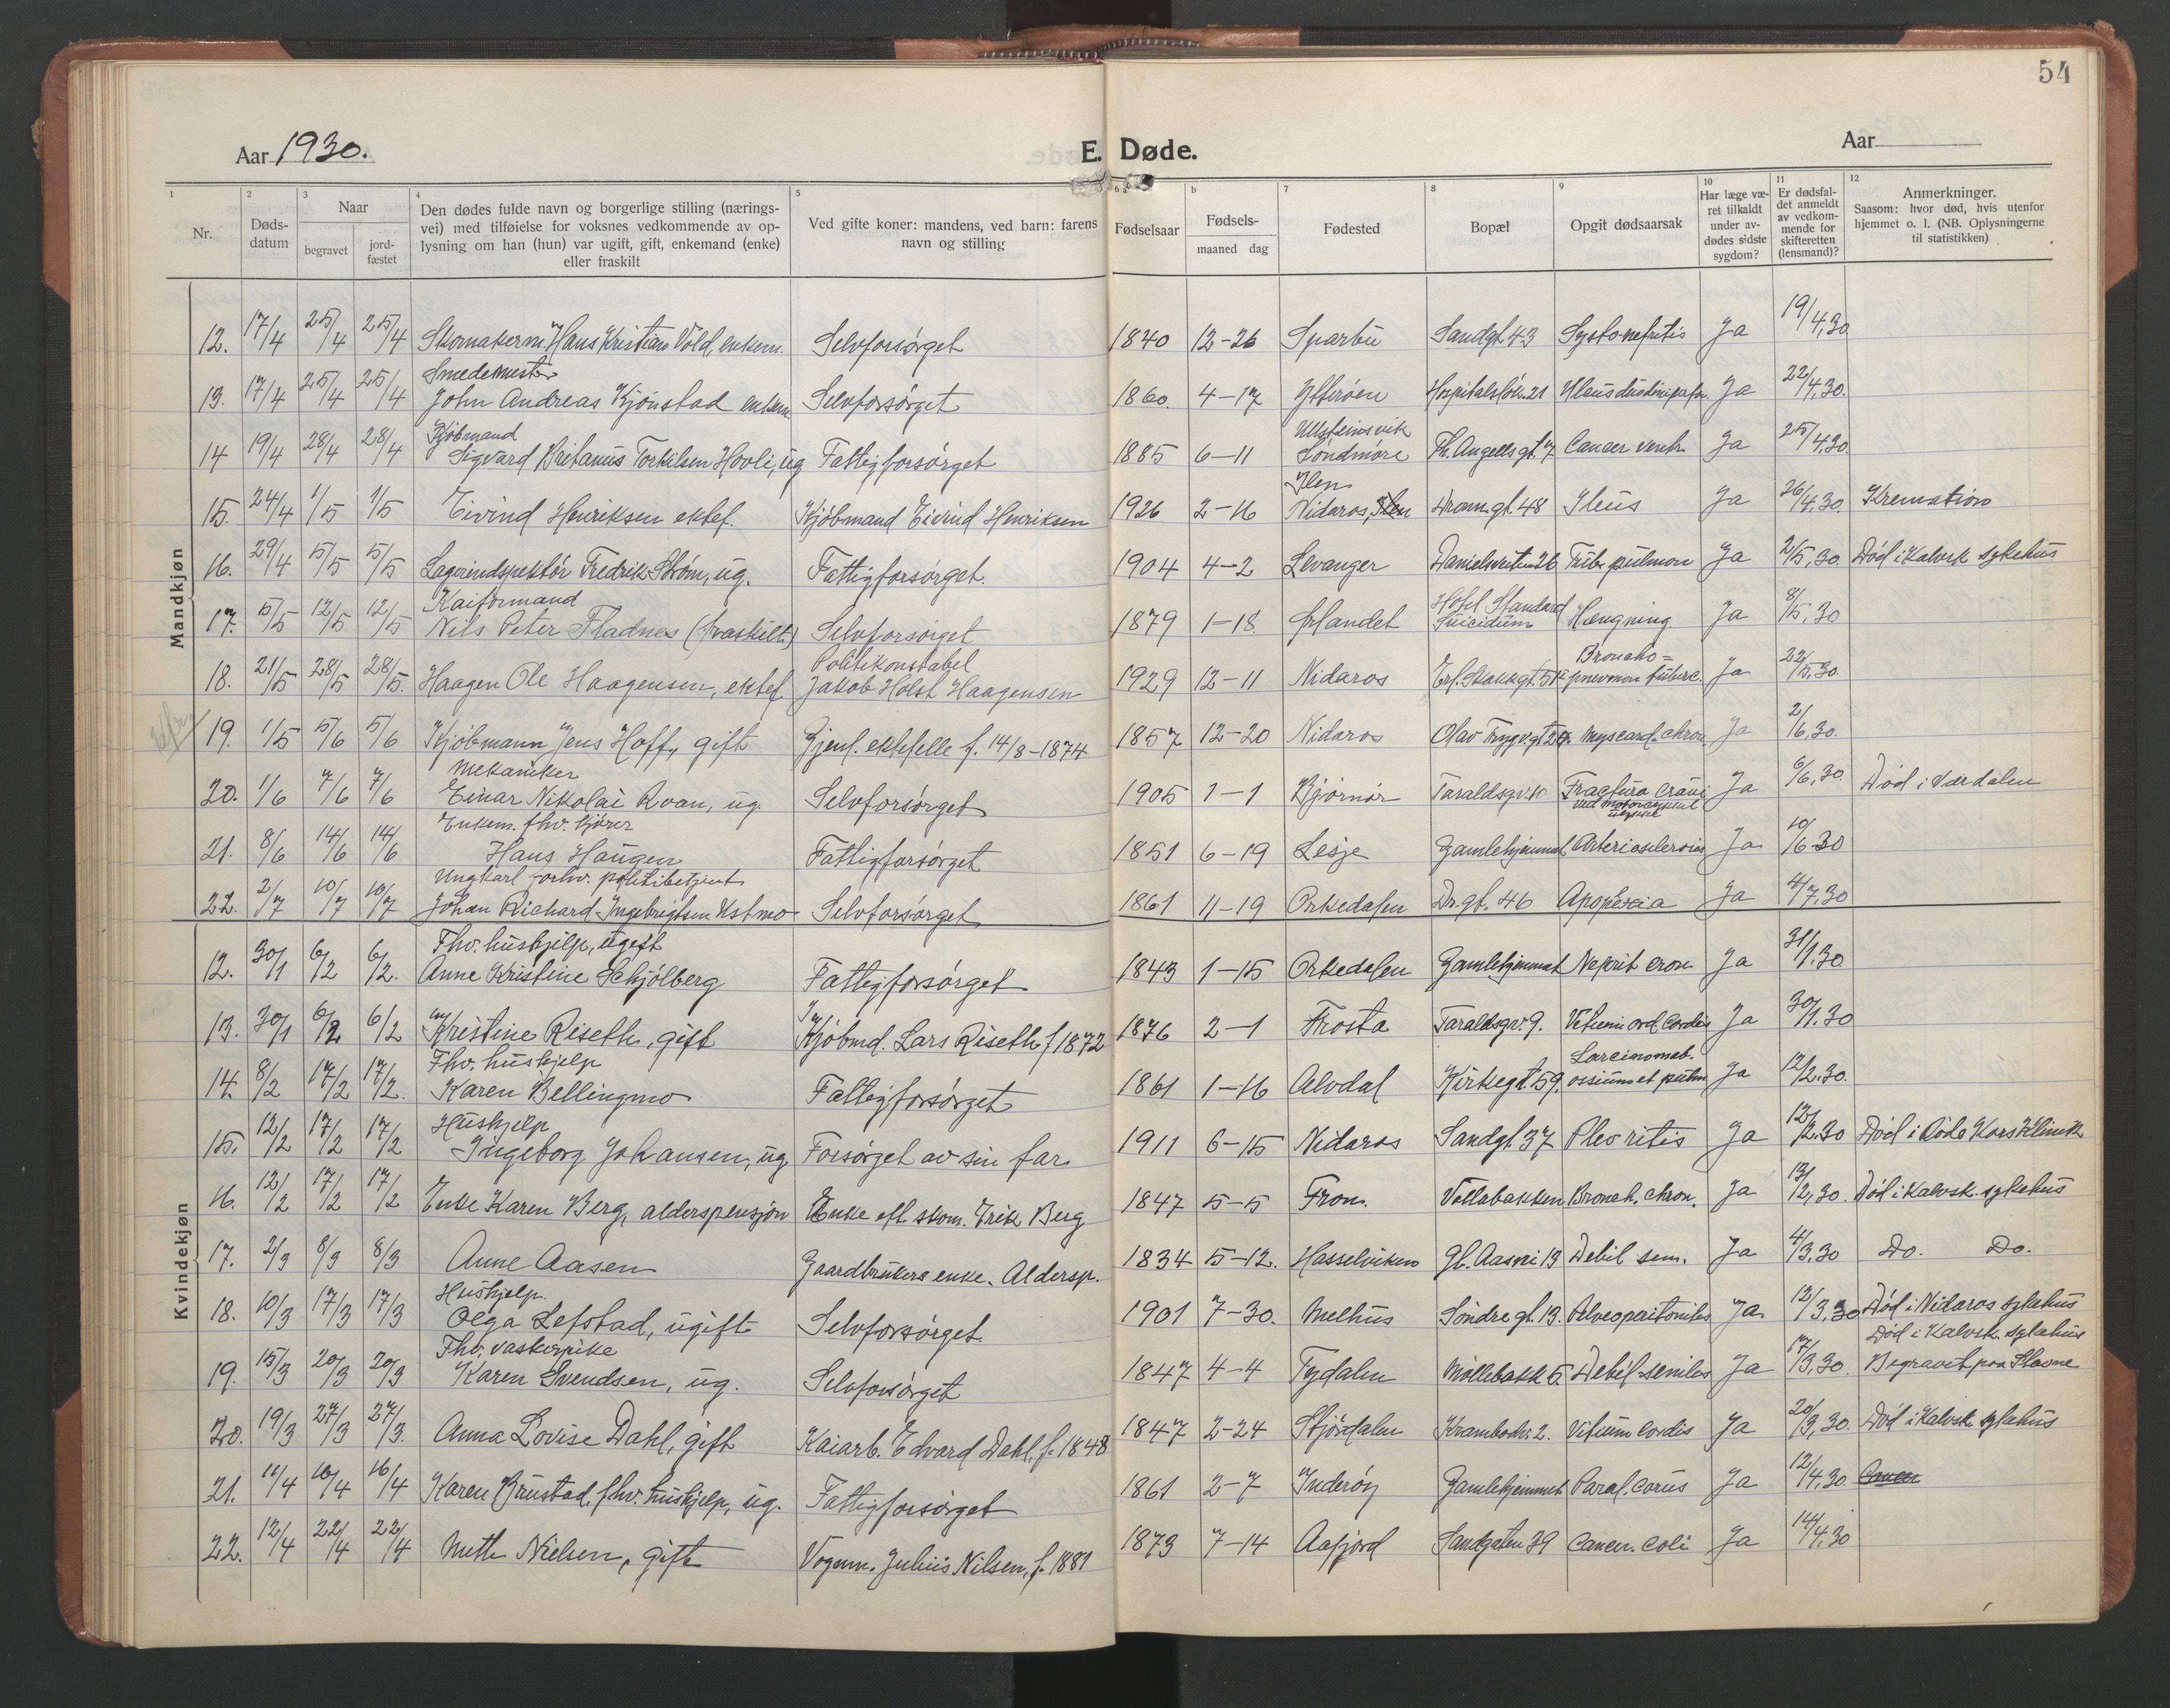 54
Aar 1930.
E. Døde.
Aar
1 2 3 4 5 6 a b 7 8 9 10 11 12
Nr.
Døds-
datum
Naar
begravet
jord-
fæstet
Den dødes fulde navn og borgerlige stilling (nærings-
vei) med tilføielse for voksnes vedkommende av op-
lysning om han (hun) var ugift, gift, enkemand (enke)
eller fraskilt
Ved gifte koner: mandens, ved barn: farens
navn og stilling
Fødselsaar
Fødsels-
maaned dag
Fødested
Bopæl
Opgit dødsaarsak
Har læge væ-
ret tilkaldt
under av-
dødes sidste
sygdom?
Er dødsfal-
det anmeldt
av vedkom-
mende for
skifteretten
(lensmand)?
Anmerkninger.
Saasom: hvor død, hvis utenfor
hjemmet o. l. (NB. Oplysningerne
til statistikken)
Mandkjøn
12. 17/4 25/4 25/4 Skomakerm. Hans Kristian Vold, enkem. Selvforsørget 1840 12-26 Sparbu Sandgt. 43 Systo-nefritis Ja 19/4,30
Smedemester
13. 17/4 25/4 25/4 John Andreas Kjønstad enkem. Selvforsørget 1860. 4-17 Ytterøen Hospitalsløk. 21 Ja 22/4,30.
Kjøbmand Ulsteinsvik
14 19/4 28/4 28/4 Sigvard Britanus Torkilsen Hovli, ug Fattigforsørget 1885 6-11 Søndmøre Th. Angells gt. 7 Cancer ventr. Ja 25/4,30
Ilen
15. 24/4 1/5 1/5 Eivind Henriksen ektef. Kjøbmand Eivind Henriksen 1926 2-16 Nidaros, Ilen Dronn. gt. 48 Ileus Ja 26/4,30. Kremation
16. 29/4 5/5 5/5 Lagerindspektør Fredrik Strøm, ug. Fattigforsørget. 1904 4-2 Levanger Danielsveiten 26 Tub. pulmon Ja 2/5,30. Død i Kalvsk sykehus
Kaiformand Hotel Standard
17. 5/5 12/5 12/5 Nils Peter Fladnes (fraskilt) Selvforsørget 1879 1-18. Ørlandet Suicidum Hængning. Ja 8/5,30
Politikonstabel Broncho=
18. 21/5 28/5 28/5. Haagen Ole Haagensen, ektef. Jakob Holst Haagensen 1929 12-11 Nidaros Erl. Skakkgt. 51 pnevmon tuberc. Ja 22/5,30.
19. 1/5 5/6 5/6 Kjøbmann Jens Hoff, gift Gjenl. ektefelle f. 14/8-1874 1857 12-20 Nidaros Olav Trygv. gt. Myocard. chron. Ja 2/6,30.
Mekaniker
20. 1/6 7/6 7/6 Einar Nikolai Roan, ug. Selvforsørget 1905 1-1 Bjørnør Taraldsgv. 10 Fractura crani Ja 6/6,30. Død i Værdalen
ved motorcykkel
Enkem. fhv. kjører
21. 8/6 14/6 14/6 Hans Haugen Fattigforsørget 1851 6-19 Lesje Gamlehjemmet Arteriosclerosis Ja 10/6-30
Ungkarl forhv. politibetjent
22. 2/7 10/7 10/7 Johan Richard Ingebrigtsen Ustmo Selvforsørget 1861 11-19 Orkedalen Dr. gt. 46 Apoplexia Ja 4/7,30
Kvindekjøn
Fhv. hushjelp, ugift
12. 30/1 6/2 6/2. Anne Kristine Schjølberg Fattigforsørget 1843 1-15 Orkedalen Gamlehjemmet Nefrit cron Ja 31/1.30
13. 30/1 6/2 6/2 Kristine Riseth, gift Kjøbmd. Lars Riseth f 1872 1876 2-1 Frosta Taraldsgv. 9. Ja 30/1.30
Fhv. hushjelp Carcinomat.
14. 8/2 17/2 17/2. Karen Bellingmo Fattigforsørget 1861 1-16 Alvdal Kirkegt. 59. ossium et pulm Ja 12/2.30.
Hushjelp
15. 12/2 17/2 17/2 Ingeborg Johansen, ug. Forsørget av sin far 1911 6-15 Nidaros Sandgt 37 Plevritis Ja 12/2.30 Død i Røde Kors Klinik
16. 12/2 17/2 17/2 Enke Karen Berg, alderspensjon Enke eft. skom. Erik Berg 1847 5-5 Fron. Vollabakken Bronch. chron. Ja 13/2,30. Død i Kalvsk. sykehus
17. 2/3 8/3 8/3 Anne Aasen Gaardbrukers enke. Aldersp. 1834 5-12. Hasselviken Gl. Aasvei 13 Debil sen. Ja 4/3,30 Do. Do.
Hushjelp.
18. 10/3 17/3 17/3 Olga Lefstad, ugift Selvforsørget 1901 7-30. Melhus Søndre gt. 13. Pelveoperitonites Ja. 12/3,30 Død i Nidaros sykehus
Fhv. vaskerpike Død i Kalvsk. sykehus
19. 15/3 20/3 20/3 Karen Svendsen, ug. Selvforsørget 1847 4-4 Tydalen Møllebakk 5. Debil. seniles Ja 17/3,30. Begravet paa Stavne
20. 19/3 27/3 27/3. Anna Lovise Dahl, gift Kaiarb. Edvard Dahl, f. 1848 1847 2-24 Stjørdalen Krambodv. 2. Vitium cordis Ja 20/3,30. Død i Kalvsk. sykehus
21. 11/4 16/4 16/4 Karen Brustad fhv. hushjelp, ug. Fattigforsørget 1861 2-7 Inderøy Gamlehjemmet Paral. cordis Ja 12/4,30. Cancer
22. 12/4 22/4 22/4 Meth Nielsen, gift Vognm. Julius Nilsen, f. 1881 1873 7-14 Aafjord Sandgaten 39 Cancer. Coli Ja 14/4,30